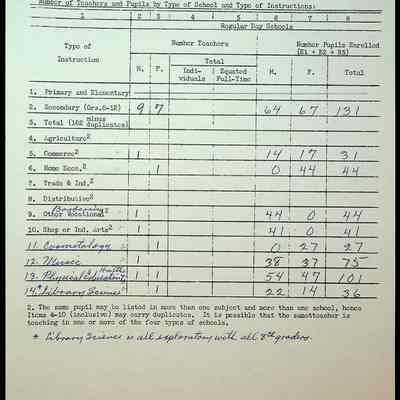 Number of Teachers and Pupils by Type of School and Type of Instructions:
1 2 3 4 5 6 7 8
Regular Day Schools
Type of Instruction Number Teachers Number Pupils Enrolled
(E1 + E2 + R5)
M. F. Total M. F. Total
Indi-viduals Equated Full-Time
1. Primary and Elementary
2. Secondary (Grs. 6-12) 9 7 64 67 131
3. Total (1&2 minus duplicates)
4. Agriculture2
5. Commerce2 1 14 17 31
6. Home Econ.2 1 0 44 44
7. Trade & Ind.2
8. Distributive2
9. Other Vocational2 1 44 0 44
10. Shop or Ind. Arts2 1 41 0 41
11. Cosmetology 1 0 27 27
12. Music 1 38 37 75
13. Physical Education Health 1 1 54 47 101
14.* Library Science 1 22 14 36
2. The same pupil may be listed in more than one subject and more than one school, hence
Items 4-10 (inclusive) may carry duplicates. It is possible that the same teacher is
teaching in one or more of the four types of schools.
* Library Science is all exploratory with all 8th graders.